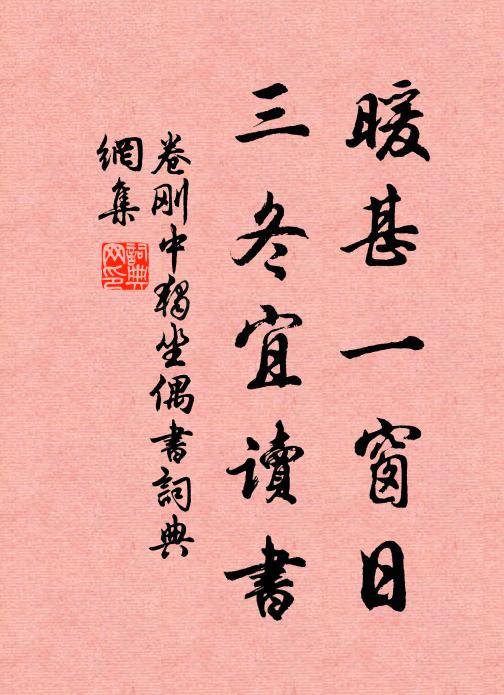 暖甚一窗日
三冬宜讀書
卷刚中獨坐偶書詞典
網集
詞典
网印